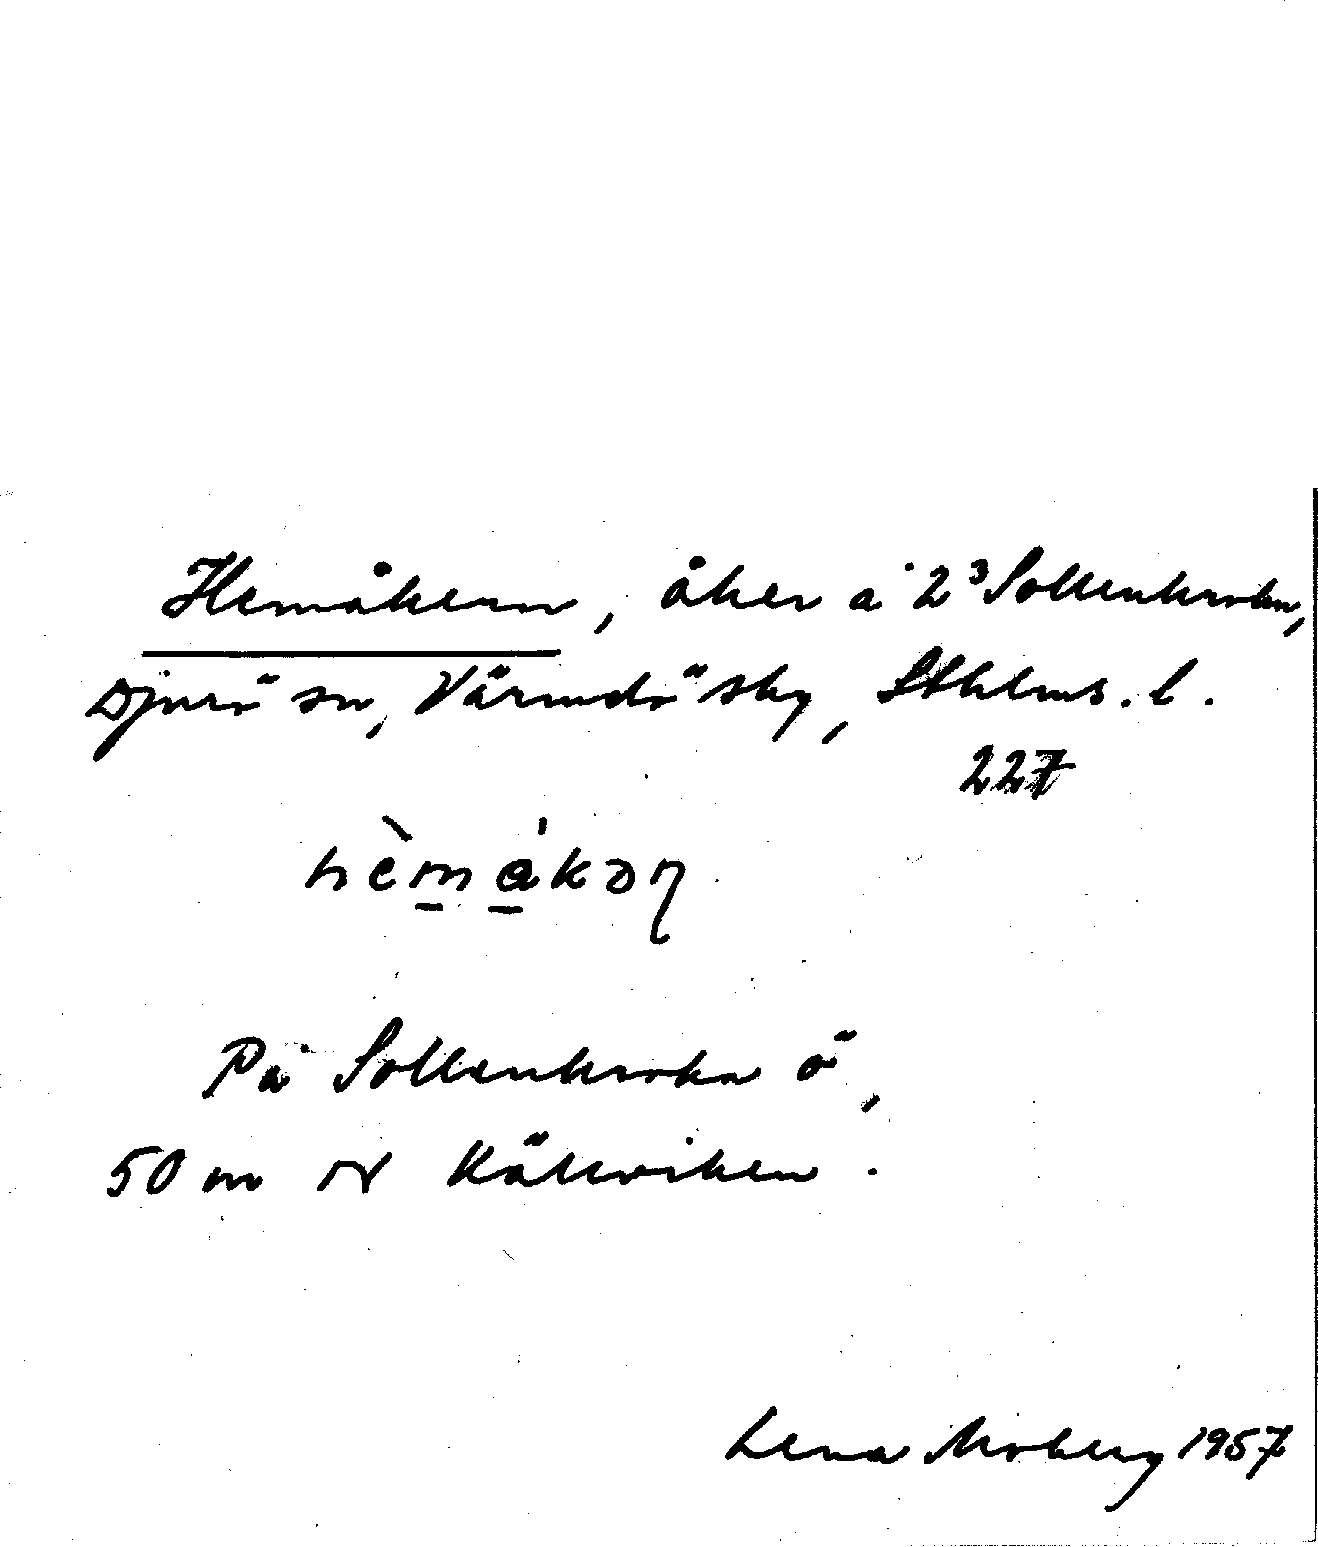 Hemåkern, åker å 2³ Sollenkroka,
Djurö sn, Värmdö skg, Sthlms. l.
227
hèmåkəɳ
På Sollenkroka ö,
50 m NV
Lena Moberg 1957